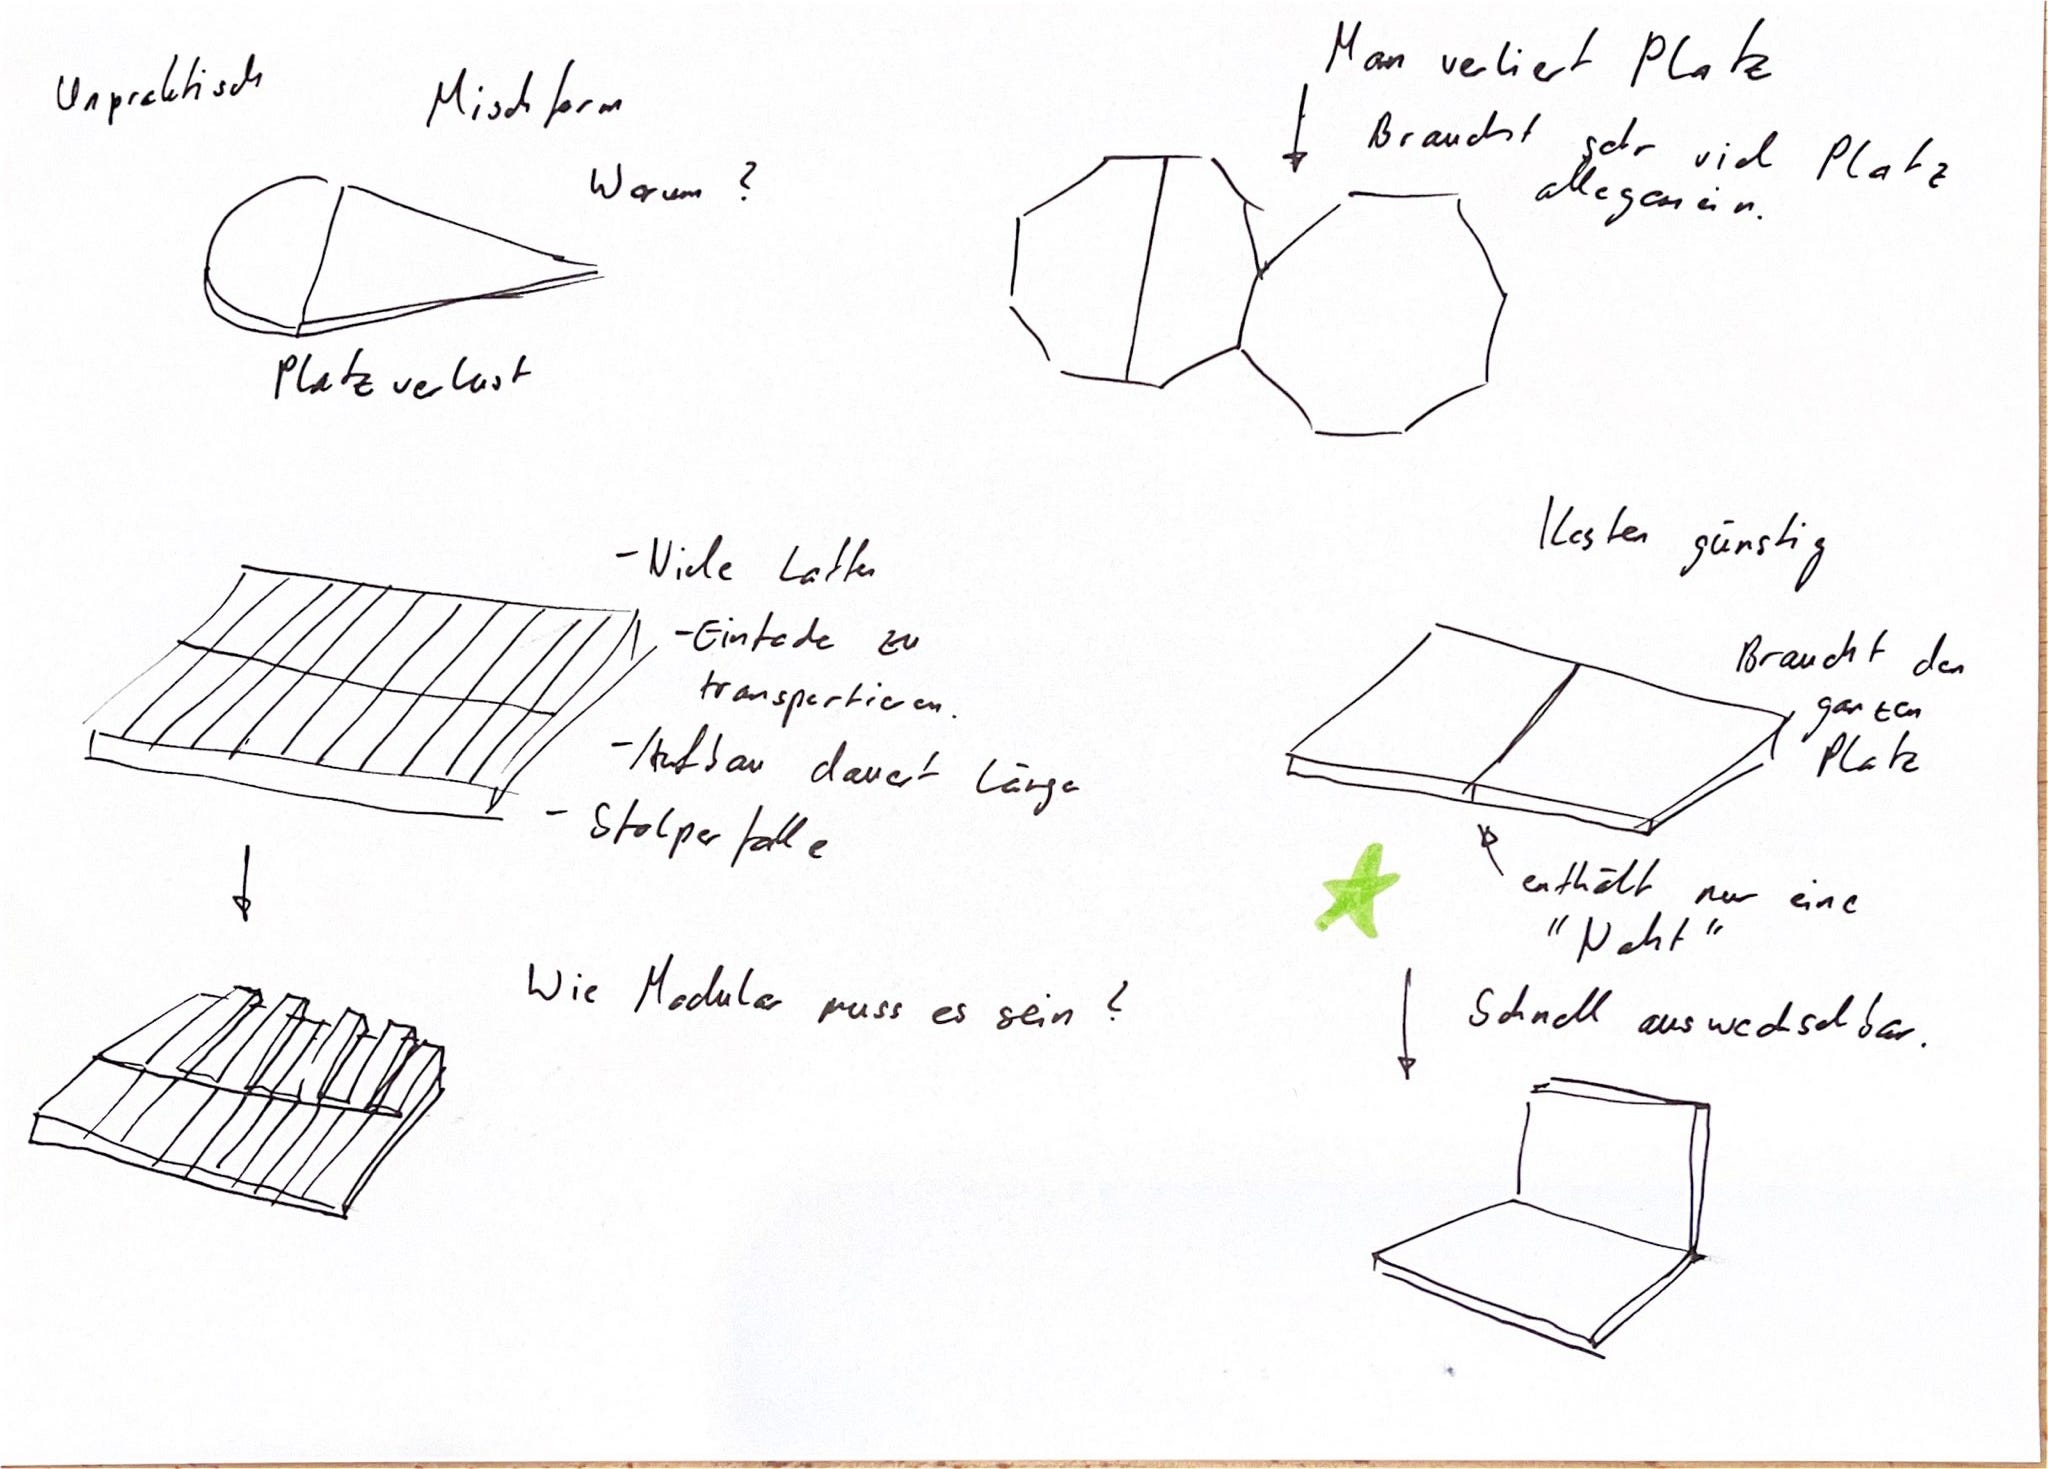 Unpraktisch
Mischform
Warum?
Platzverlust
Man verliert Platz
Braucht sehr viel Platz
allegemein.
- Viele Latten
- Einfache zu
transportieren.
- Aufbau dauert länge
- Stolperfalle
Wie Modular muss es sein?
Kosten günstig
Braucht den
ganzen
Platz
enthält nur eine
"Naht"
Schnell auswechselbar.